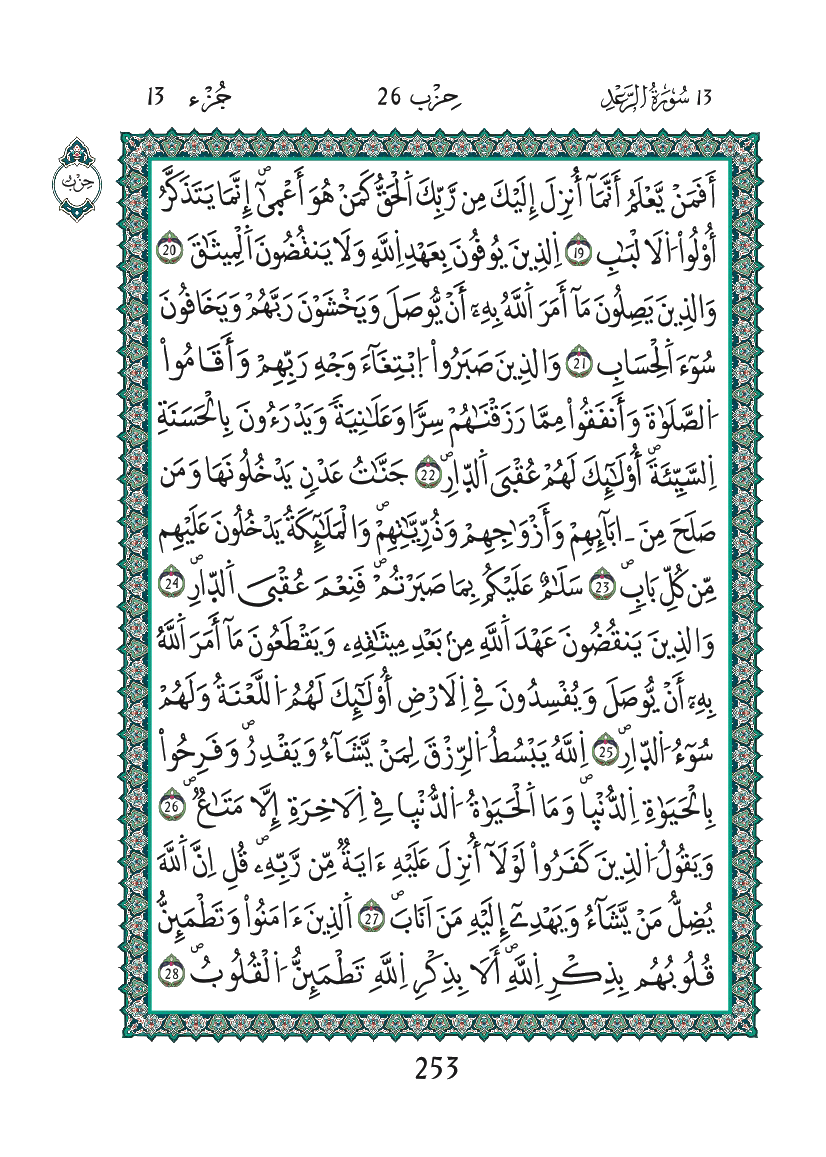 13 سُورَةُ الرَّعْدِ
حِزْب 26
جُزْء 13
حِزْب
أَفَمَنْ يَّعْلَمُ أَنَّمَآ أُنزِلَ إِلَيْكَ مِن رَّبِّكَ اَ۬لْحَقُّ كَمَنْ هُوَ أَعْم۪ىٰٓۖ إِنَّمَا يَتَذَكَّرُ
أُوْلُواْ اُ۬لَالْبَٰبِ 19 اِ۬لذِينَ يُوفُونَ بِعَهْدِ اِ۬للَّهِ وَلَا يَنقُضُونَ اَ۬لْمِيثَٰقَ 20
وَالذِينَ يَصِلُونَ مَآ أَمَرَ اَ۬للَّهُ بِهِۦٓ أَنْ يُّوصَلَ وَيَخْشَوْنَ رَبَّهُمْ وَيَخَافُونَ
سُوٓءَ اَ۬لْحِسَابِ 21 وَالذِينَ صَبَرُواْ اُ۪بْتِغَآءَ وَجْهِ رَبِّهِمْ وَأَقَامُواْ
اُ۬لصَّلَوٰةَ وَأَنفَقُواْ مِمَّا رَزَقْنَٰهُمْ سِرّاً وَعَلَٰنِيَةً وَيَدْرَءُونَ بِالْحَسَنَةِ
اِ۬لسَّيِّئَةَۖ أُوْلَٰٓئِكَ لَهُمْ عُقْبَى اَ۬لدّ۪ارِۖ 22 جَنَّٰتُ عَدْنٍ يَدْخُلُونَهَا وَمَن
صَلَحَ مِنَ اٰبَآئِهِمْ وَأَزْوَٰجِهِمْ وَذُرِّيَّٰتِهِمْۖ وَالْمَلَٰٓئِكَةُ يَدْخُلُونَ عَلَيْهِم
مِّن كُلِّ بَابٍۖ 23 سَلَٰمٌ عَلَيْكُم بِمَا صَبَرْتُمْۖ فَنِعْمَ عُقْبَى اَ۬لدّ۪ارِۖ 24
وَالذِينَ يَنقُضُونَ عَهْدَ اَ۬للَّهِ مِنۢ بَعْدِ مِيثَٰقِهِۦ وَيَقْطَعُونَ مَآ أَمَرَ اَ۬للَّهُ
بِهِۦٓ أَنْ يُّوصَلَ وَيُفْسِدُونَ فِي اِ۬لَارْضِ أُوْلَٰٓئِكَ لَهُمُ اُ۬للَّعْنَةُ وَلَهُمْ
سُوٓءُ اُ۬لدّ۪ارِۖ 25 اِ۬للَّهُ يَبْسُطُ اُ۬لرِّزْقَ لِمَنْ يَّشَآءُ وَيَقْدِرُۖ وَفَرِحُواْ
بِالْحَيَوٰةِ اِ۬لدُّنْي۪اۖ وَمَا اَ۬لْحَيَوٰةُ اُ۬لدُّنْي۪ا فِي اِ۬لَاخِرَةِ إِلَّا مَتَٰعٌۖ 26
وَيَقُولُ اُ۬لذِينَ كَفَرُواْ لَوْلَآ أُنزِلَ عَلَيْهِ ءَايَةٌ مِّن رَّبِّهِۦۖ قُلِ اِنَّ اَ۬للَّهَ
يُضِلُّ مَنْ يَّشَآءُ وَيَهْدِےٓ إِلَيْهِ مَنَ اَنَابَۖ 27 اَ۬لذِينَ ءَامَنُواْ وَتَطْمَئِنُّ
قُلُوبُهُم بِذِكْرِ اِ۬للَّهِۖ أَلَا بِذِكْرِ اِ۬للَّهِ تَطْمَئِنُّ اُ۬لْقُلُوبُۖ 28
253